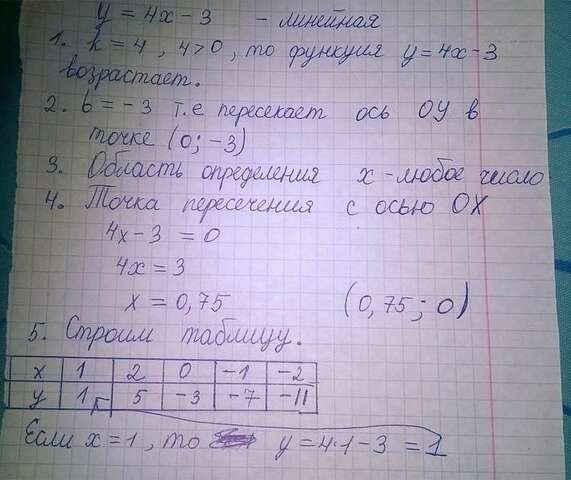 y = 4x - 3 - линейная
1. k = 4, 4 > 0, то функция y = 4x - 3
возрастает.
2. b = -3 т.е пересекает ось OY в
точке (0; -3)
3. Область определения x - любое число
4. Точка пересечения с осью OX
4x - 3 = 0
4x = 3
x = 0,75 (0,75; 0)
5. Строим таблицу.
x 1 2 0 -1 -2
y 1 5 -3 -7 -11
Если x = 1, то y = 4·1 - 3 = 1